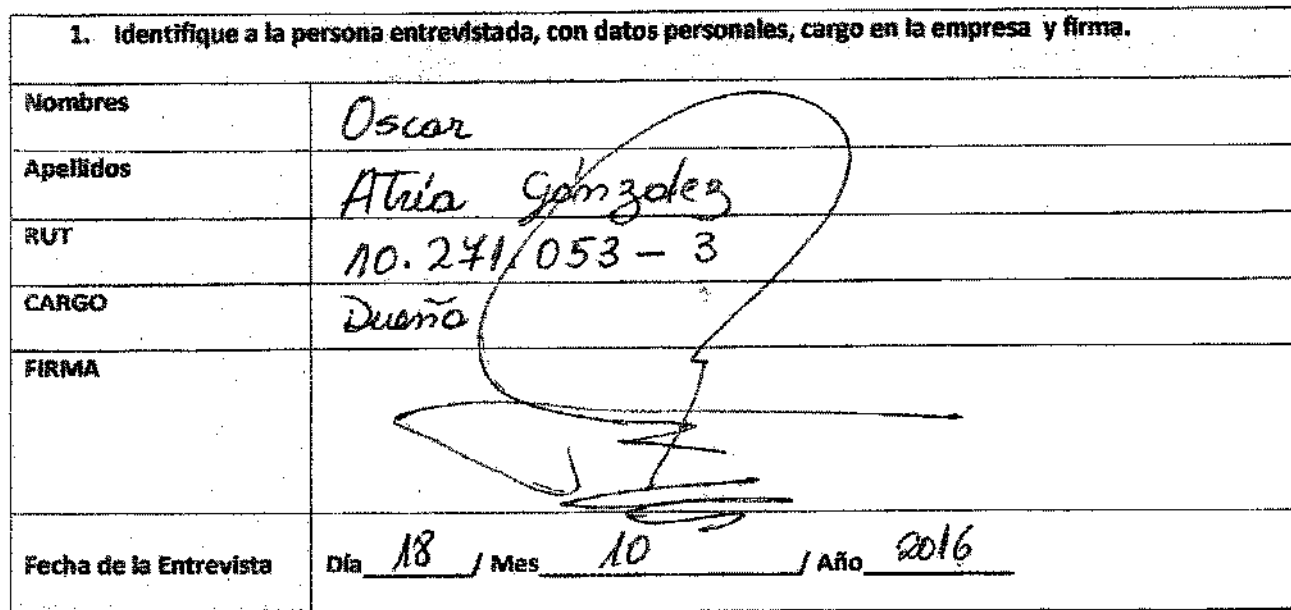 1. Identifique a la persona entrevistada, con datos personales, cargo en la empresa y firma.
Nombres Oscar
Apellidos Atria González
RUT 10.271.053-3
CARGO Dueño
FIRMA
Fecha de la Entrevista Día 18 / Mes 10 / Año 2016